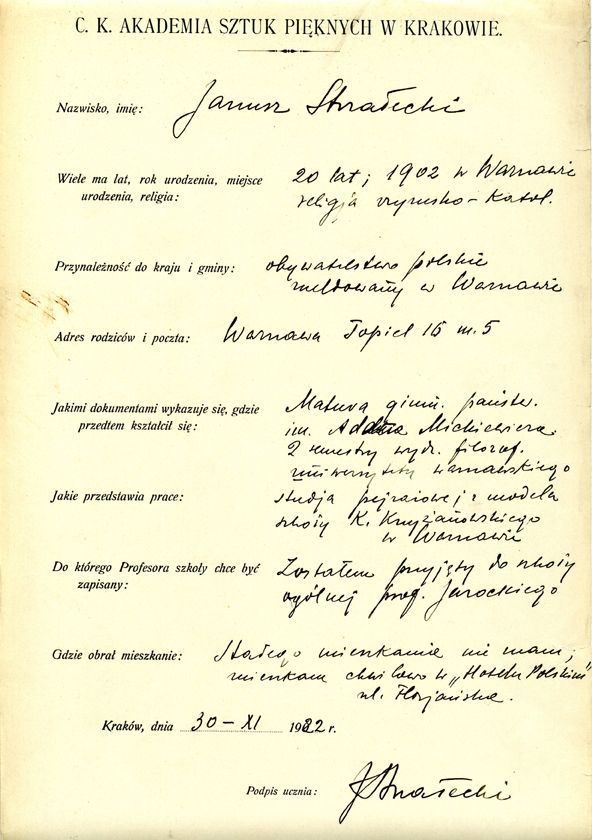 C. K. AKADEMIA SZTUK PIĘKNYCH W KRAKOWIE.
Nazwisko, imię: Janusz Strzałecki
Wiele ma lat, rok urodzenia, miejsce 20 lat; 1902 w Warszawie
urodzenia, religia: religja rzymsko-katol.
Przynależność do kraju i gminy: obywatelstwo polskie
meldowany w Warszawie
Adres rodziców i poczta: Warszawa Topiel 16 m. 5
Jakimi dokumentami wykazuje się, gdzie Matura gimn. państw.
przedtem kształcił się: im. Adama Mickiewicza.
2 semestry wydz. filozof.
uniwersytetu warszawskiego
Jakie przedstawia prace: studja pejzażowe i z modela
szkoły K. Krzyżanowskiego
w Warszawie
Do którego Profesora szkoły chce być Zostałem przyjęty do szkoły
zapisany: ogólnej prof. Jarockiego
Gdzie obrał mieszkanie: Stałego mieszkania nie mam;
mieszkam chwilowo w „Hotelu Polskim"
ul. Florjańska.
Kraków, dnia 30-XI 1922 r.
Podpis ucznia: JStrzałecki